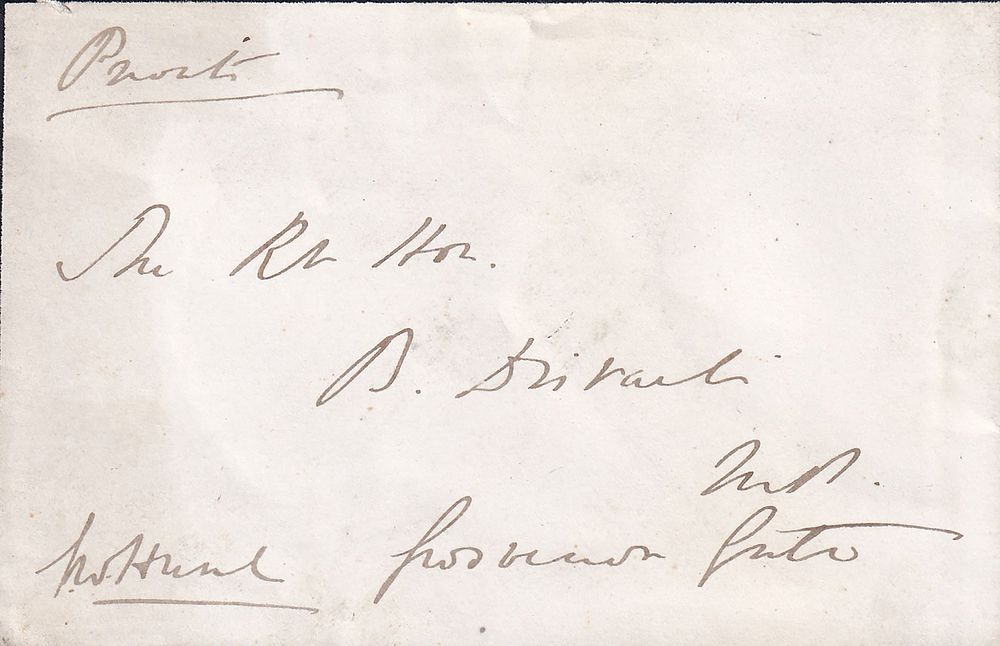 Private
The Rt Hon.
B. Disraeli
M.P.
Grosvenor Gate